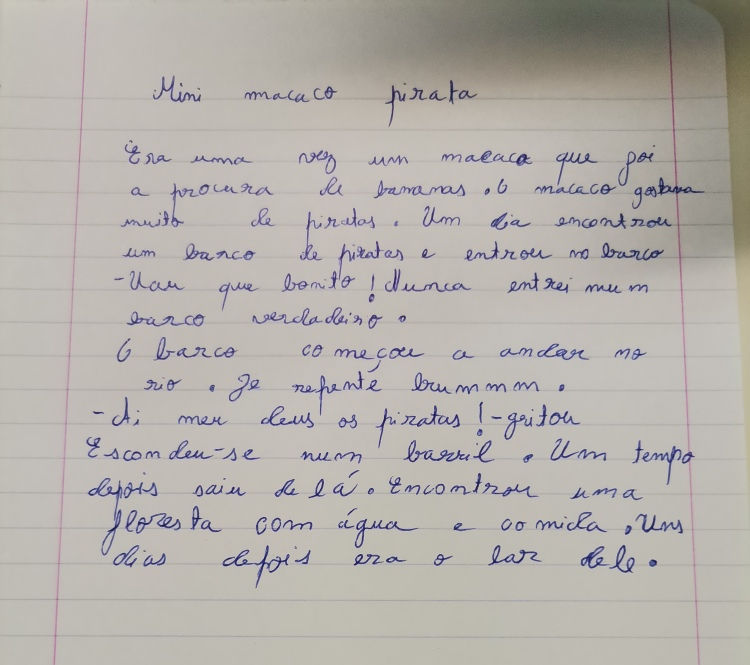 Mini macaco pirata
Era uma vez um macaco que foi
a procura de bananas. O macaco gostava
muito de piratas. Um dia encontrou
um barco de piratas e entrou no barco
-Uau que bonito! Nunca entrei num
barco verdadeiro.
O barco começou a andar no
rio. De repente brummm.
-Ai meu deus os piratas!-gritou
Escondeu-se num barril. Um tempo
depois saiu de lá. Encontrou uma
floresta com água e comida. Uns
dias depois era o lar dele.